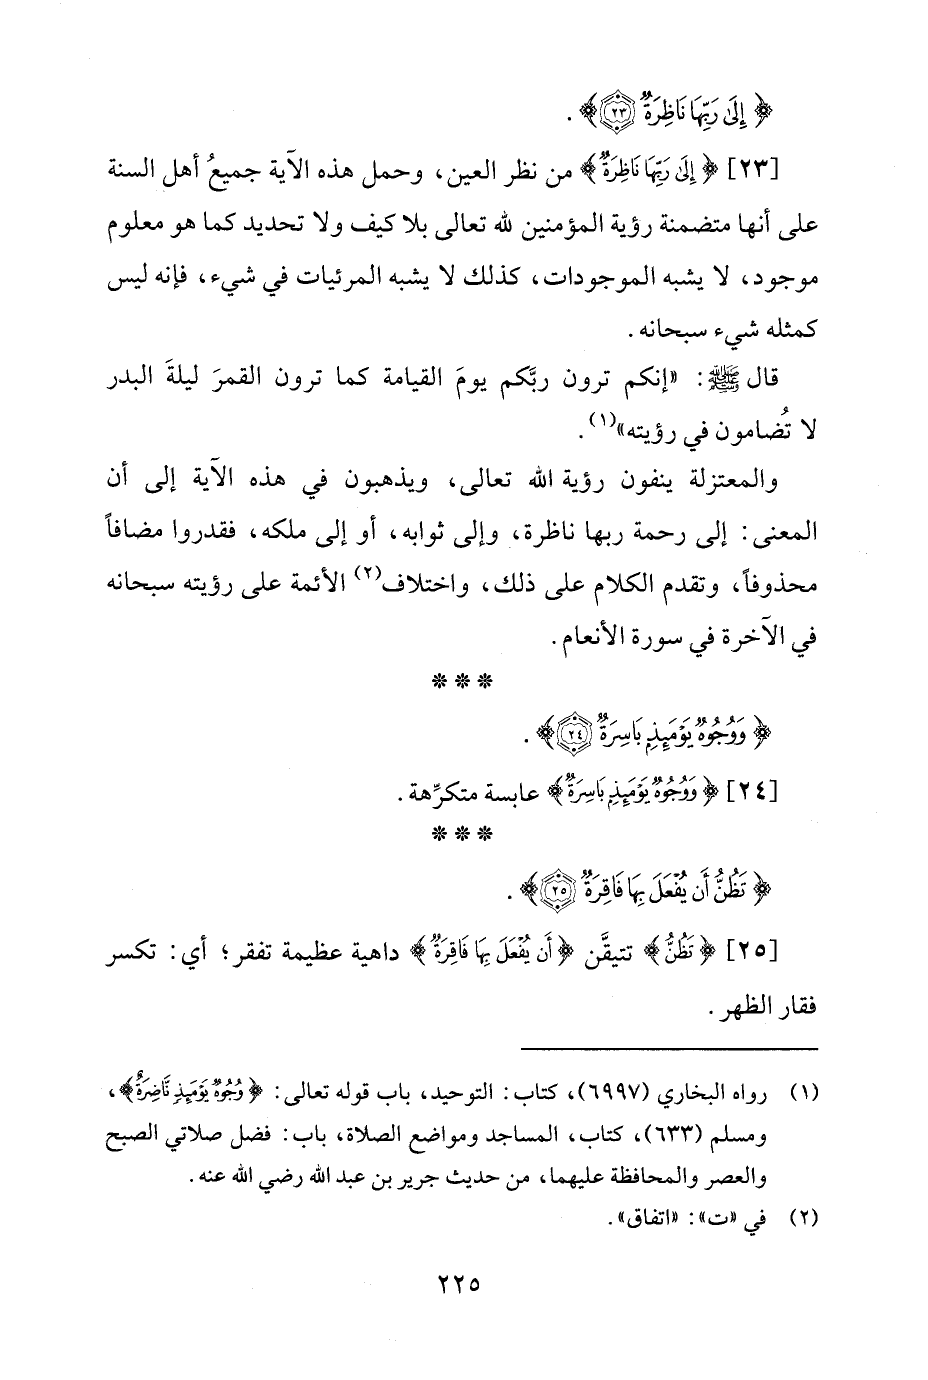 ﴿إِلَىٰ رَبِّهَا نَاظِرَةٌ ۝٢٣﴾.
[٢٣] ﴿إِلَىٰ رَبِّهَا نَاظِرَةٌ﴾ من نظر العين، وحمل هذه الآية جميعُ أهل السنة
على أنها متضمنة رؤية المؤمنين لله تعالى بلا كيف ولا تحديد كما هو معلوم
موجود، لا يشبه الموجودات، كذلك لا يشبه المرئيات في شيء، فإنه ليس
كمثله شيء سبحانه.
قال ﷺ: «إنكم ترون ربَّكم يومَ القيامة كما ترون القمرَ ليلةَ البدر
لا تُضامون في رؤيته»(١).
والمعتزلة ينفون رؤية الله تعالى، ويذهبون في هذه الآية إلى أن
المعنى: إلى رحمة ربها ناظرة، وإلى ثوابه، أو إلى ملكه، فقدروا مضافاً
محذوفاً، وتقدم الكلام على ذلك، واختلاف(٢) الأئمة على رؤيته سبحانه
في الآخرة في سورة الأنعام.
***
﴿وَوُجُوهٌ يَوْمَئِذٍ بَاسِرَةٌ ۝٢٤﴾.
[٢٤] ﴿وَوُجُوهٌ يَوْمَئِذٍ بَاسِرَةٌ﴾ عابسة متكرِّهة.
***
﴿تَظُنُّ أَن يُفْعَلَ بِهَا فَاقِرَةٌ ۝٢٥﴾.
[٢٥] ﴿تَظُنُّ﴾ تتيقَّن ﴿أَن يُفْعَلَ بِهَا فَاقِرَةٌ﴾ داهية عظيمة تفقر؛ أي: تكسر
فقار الظهر.
(١) رواه البخاري (٦٩٩٧)، كتاب: التوحيد، باب قوله تعالى: ﴿وُجُوهٌ يَوْمَئِذٍ نَّاضِرَةٌ﴾،
ومسلم (٦٣٣)، كتاب، المساجد ومواضع الصلاة، باب: فضل صلاتي الصبح
والعصر والمحافظة عليهما، من حديث جرير بن عبد الله رضي الله عنه.
(٢) في «ت»: «اتفاق».
٢٢٥